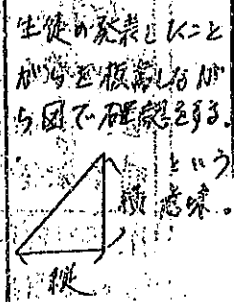 生徒の発表したこと
がらを板書しなが
ら図で確認をする。
という
意味。
縦